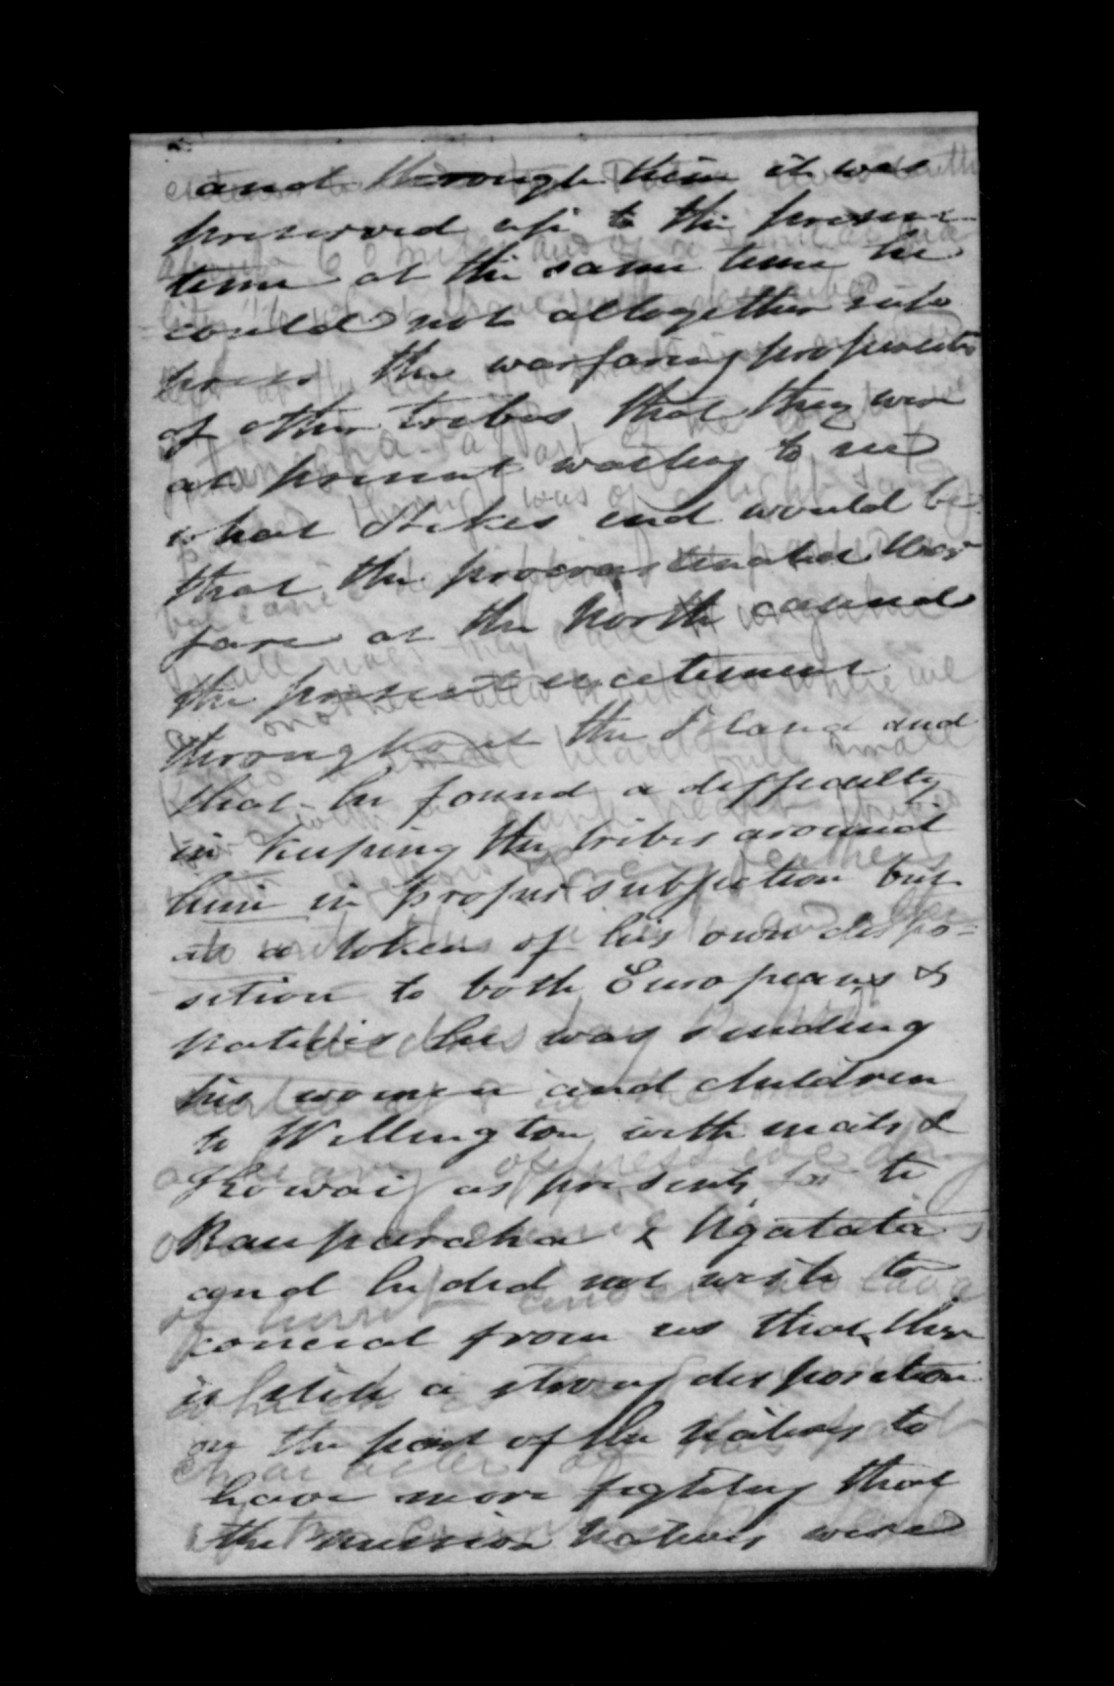 and through them it was
preserved up to the present
time at the same time he
could not altogether sup
press the warfaring propensities
of other tribes that they were
at present waiting to see
what Hekes end would be
that the procrastinated War
fare at the North caused
the present excitement
throughout the Island and
that he found a difficulty
in keeping the tribes around
him in proper subjection but
as a token of his own dispo-
sition to both Europeans &
natives he was sending
his women and children
to Wellington with mats &
as presents to
Rauparaha & Ngatata
and he did not wish to
conceal from us that there
is still a strong disposition
on the part of the Natives to
have more fighting that
the mission Natives were